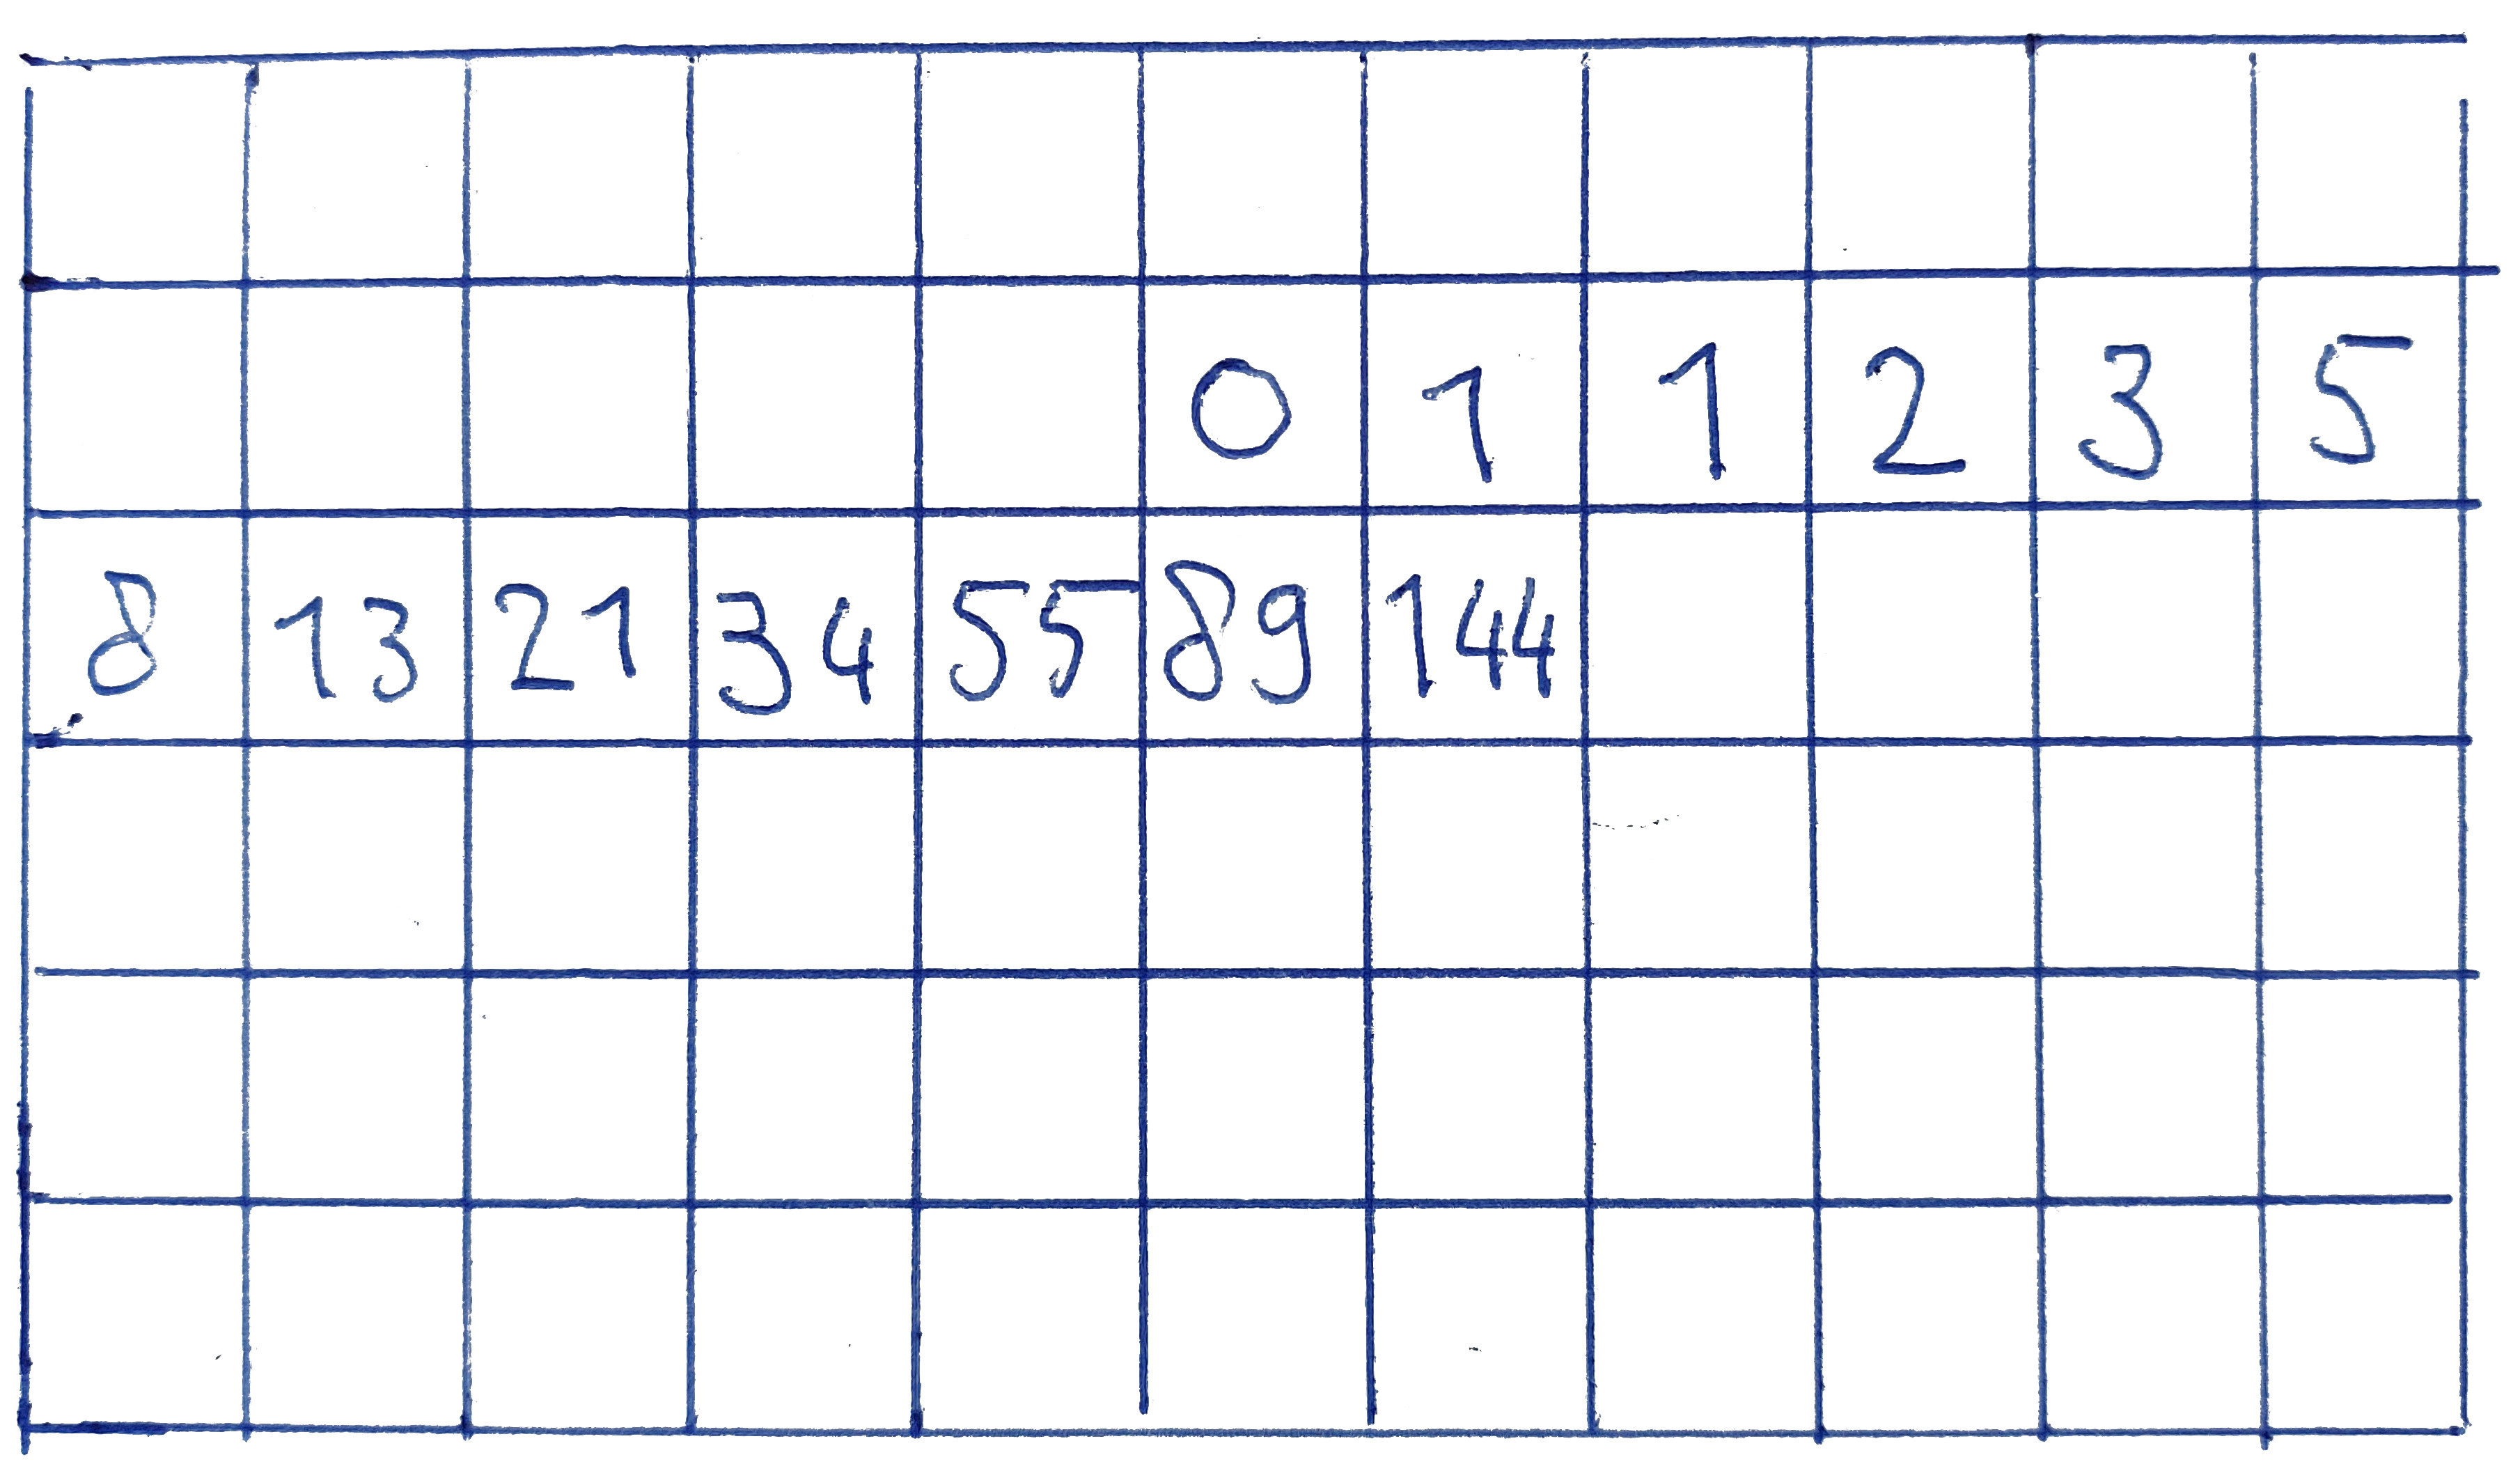 0 1 1 2 3 5
8 13 21 34 55 89 144